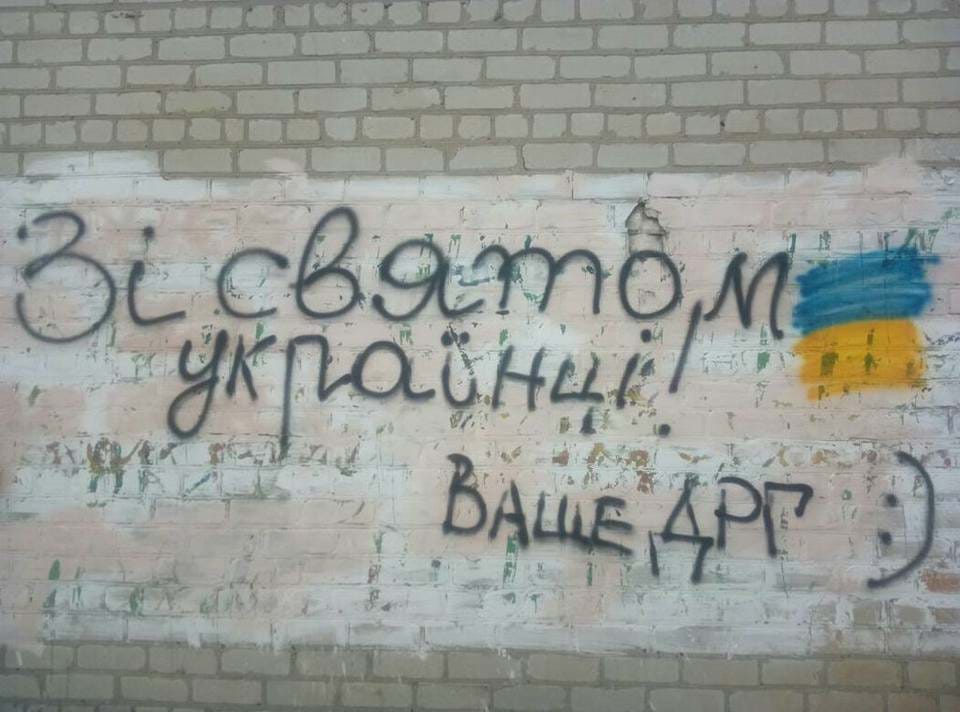 Зі святом
українці!
Ваше ДРГ :)